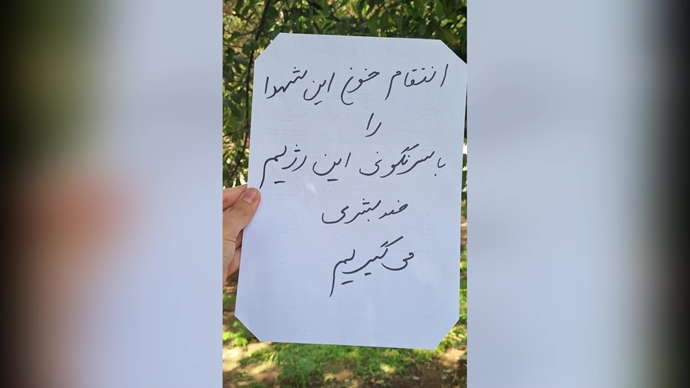 انتقام خون این شهدا
را
با سرنگونی این رژیم
ضد بشری
می‌گیریم